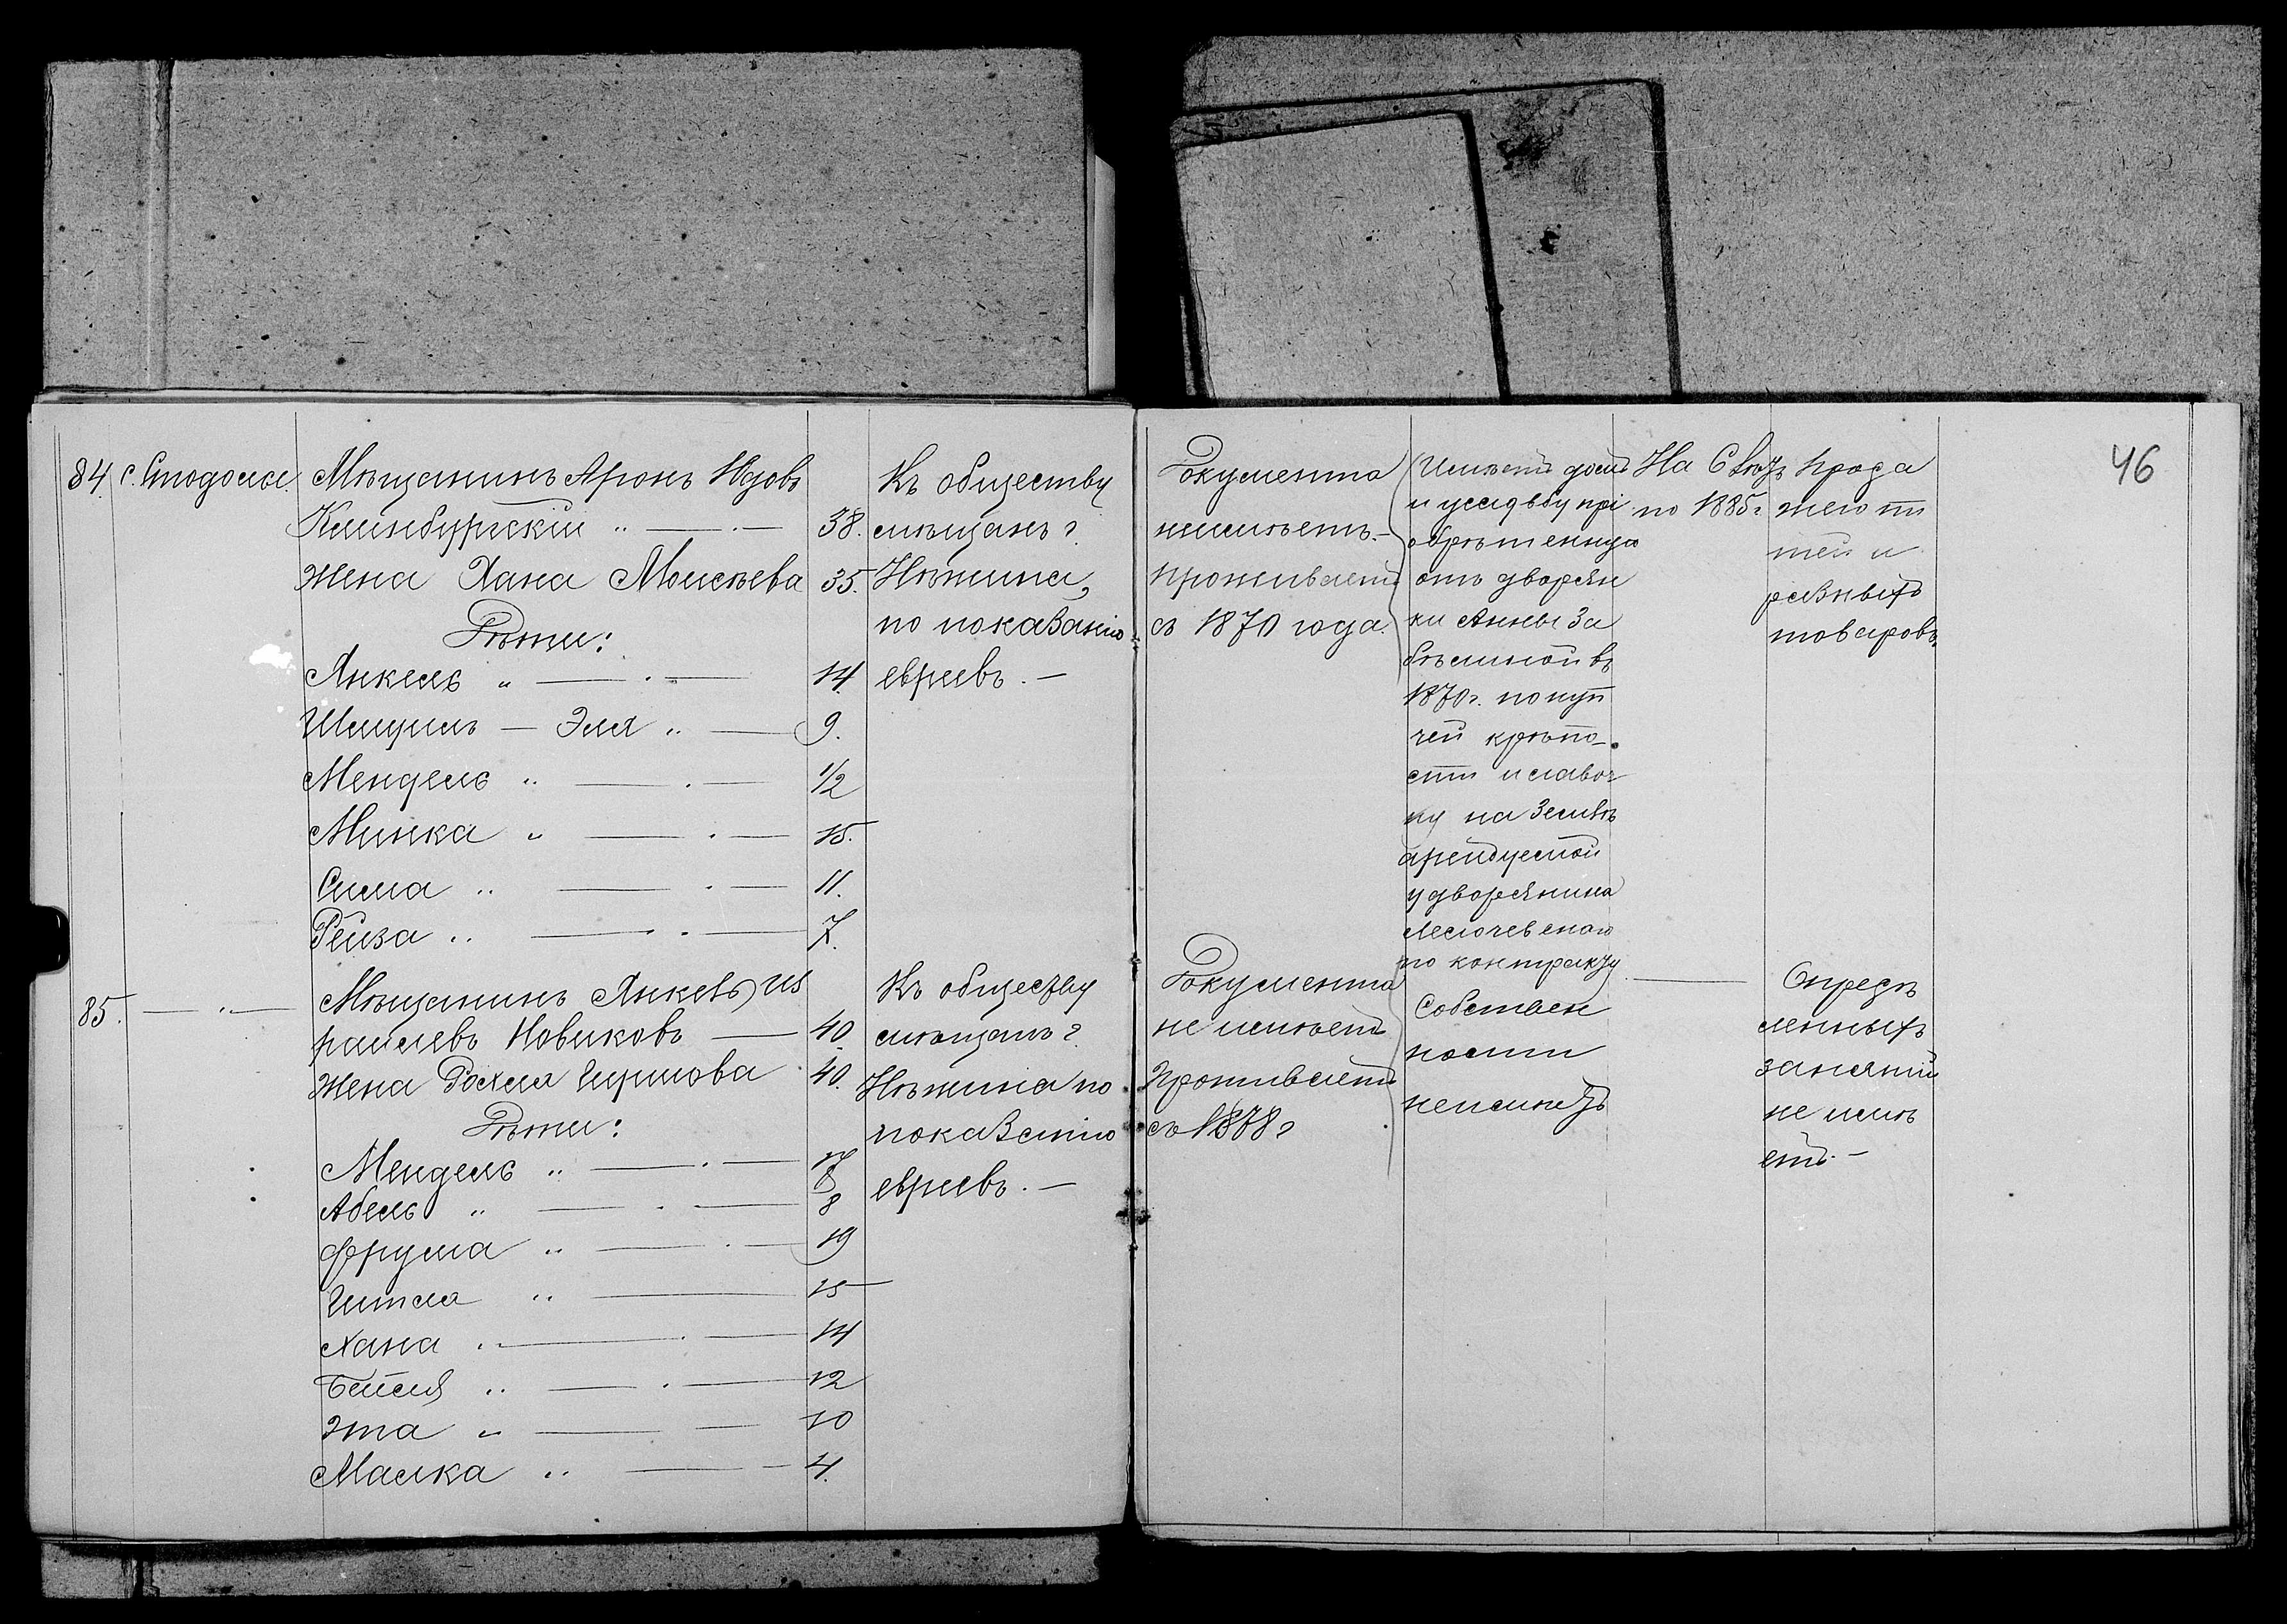 46
84. с. Стодолы.
Мѣщанинъ Аронъ Юдовъ
Кинбургскій „ — . — 38.
Жена Хана Моисѣева 35.
Дѣти:
Янкель „ — . — 14.
Шмуилъ — Эля „ — 9.
Мендель „ — . — 1/2
Минка „ — . — 15.
Сима „ — . — 11.
Рейза „ — . — 7.
Къ обществу
мѣщанъ г.
Нѣжина,
по показанію
евреевъ. —
Документа
неимѣетъ. —
Проживаетъ
съ 1870 года.
Имѣетъ домъ
и усадьбу прі
обрѣтенную
отъ дворян
ки Анны За
бѣлиной въ
1870г. по куп
чей крѣпо-
сти и лавоч
ку на землѣ
арендуемой
у дворянина
по контракту
На 6 лѣтъ
по 1885г.
Прода
жею пи
тей и
разныхъ
товаровъ.
85. — „ —
Мѣщанинъ Янкель Из
раилевъ Новиковъ — 40.
Жена Рохля Гиршова 40.
Дѣти:
Мендель „ — . — 17
Абель „ — . — 8
Фрума „ — . — 19
Гитля „ — 15
Хана „ — . — 14
Бейля „ — . — 12
Эта „ — — 10
Малка „ — - 4.
Къ обществу
мѣщанъ г.
Нѣжина по
показанію
евреевъ. —
Документа
не имѣетъ
Проживаетъ
съ 1878г
Собствен
ности
неимѣетъ
—
Опредѣ
ленныхъ
занятій
не имѣ
етъ. —